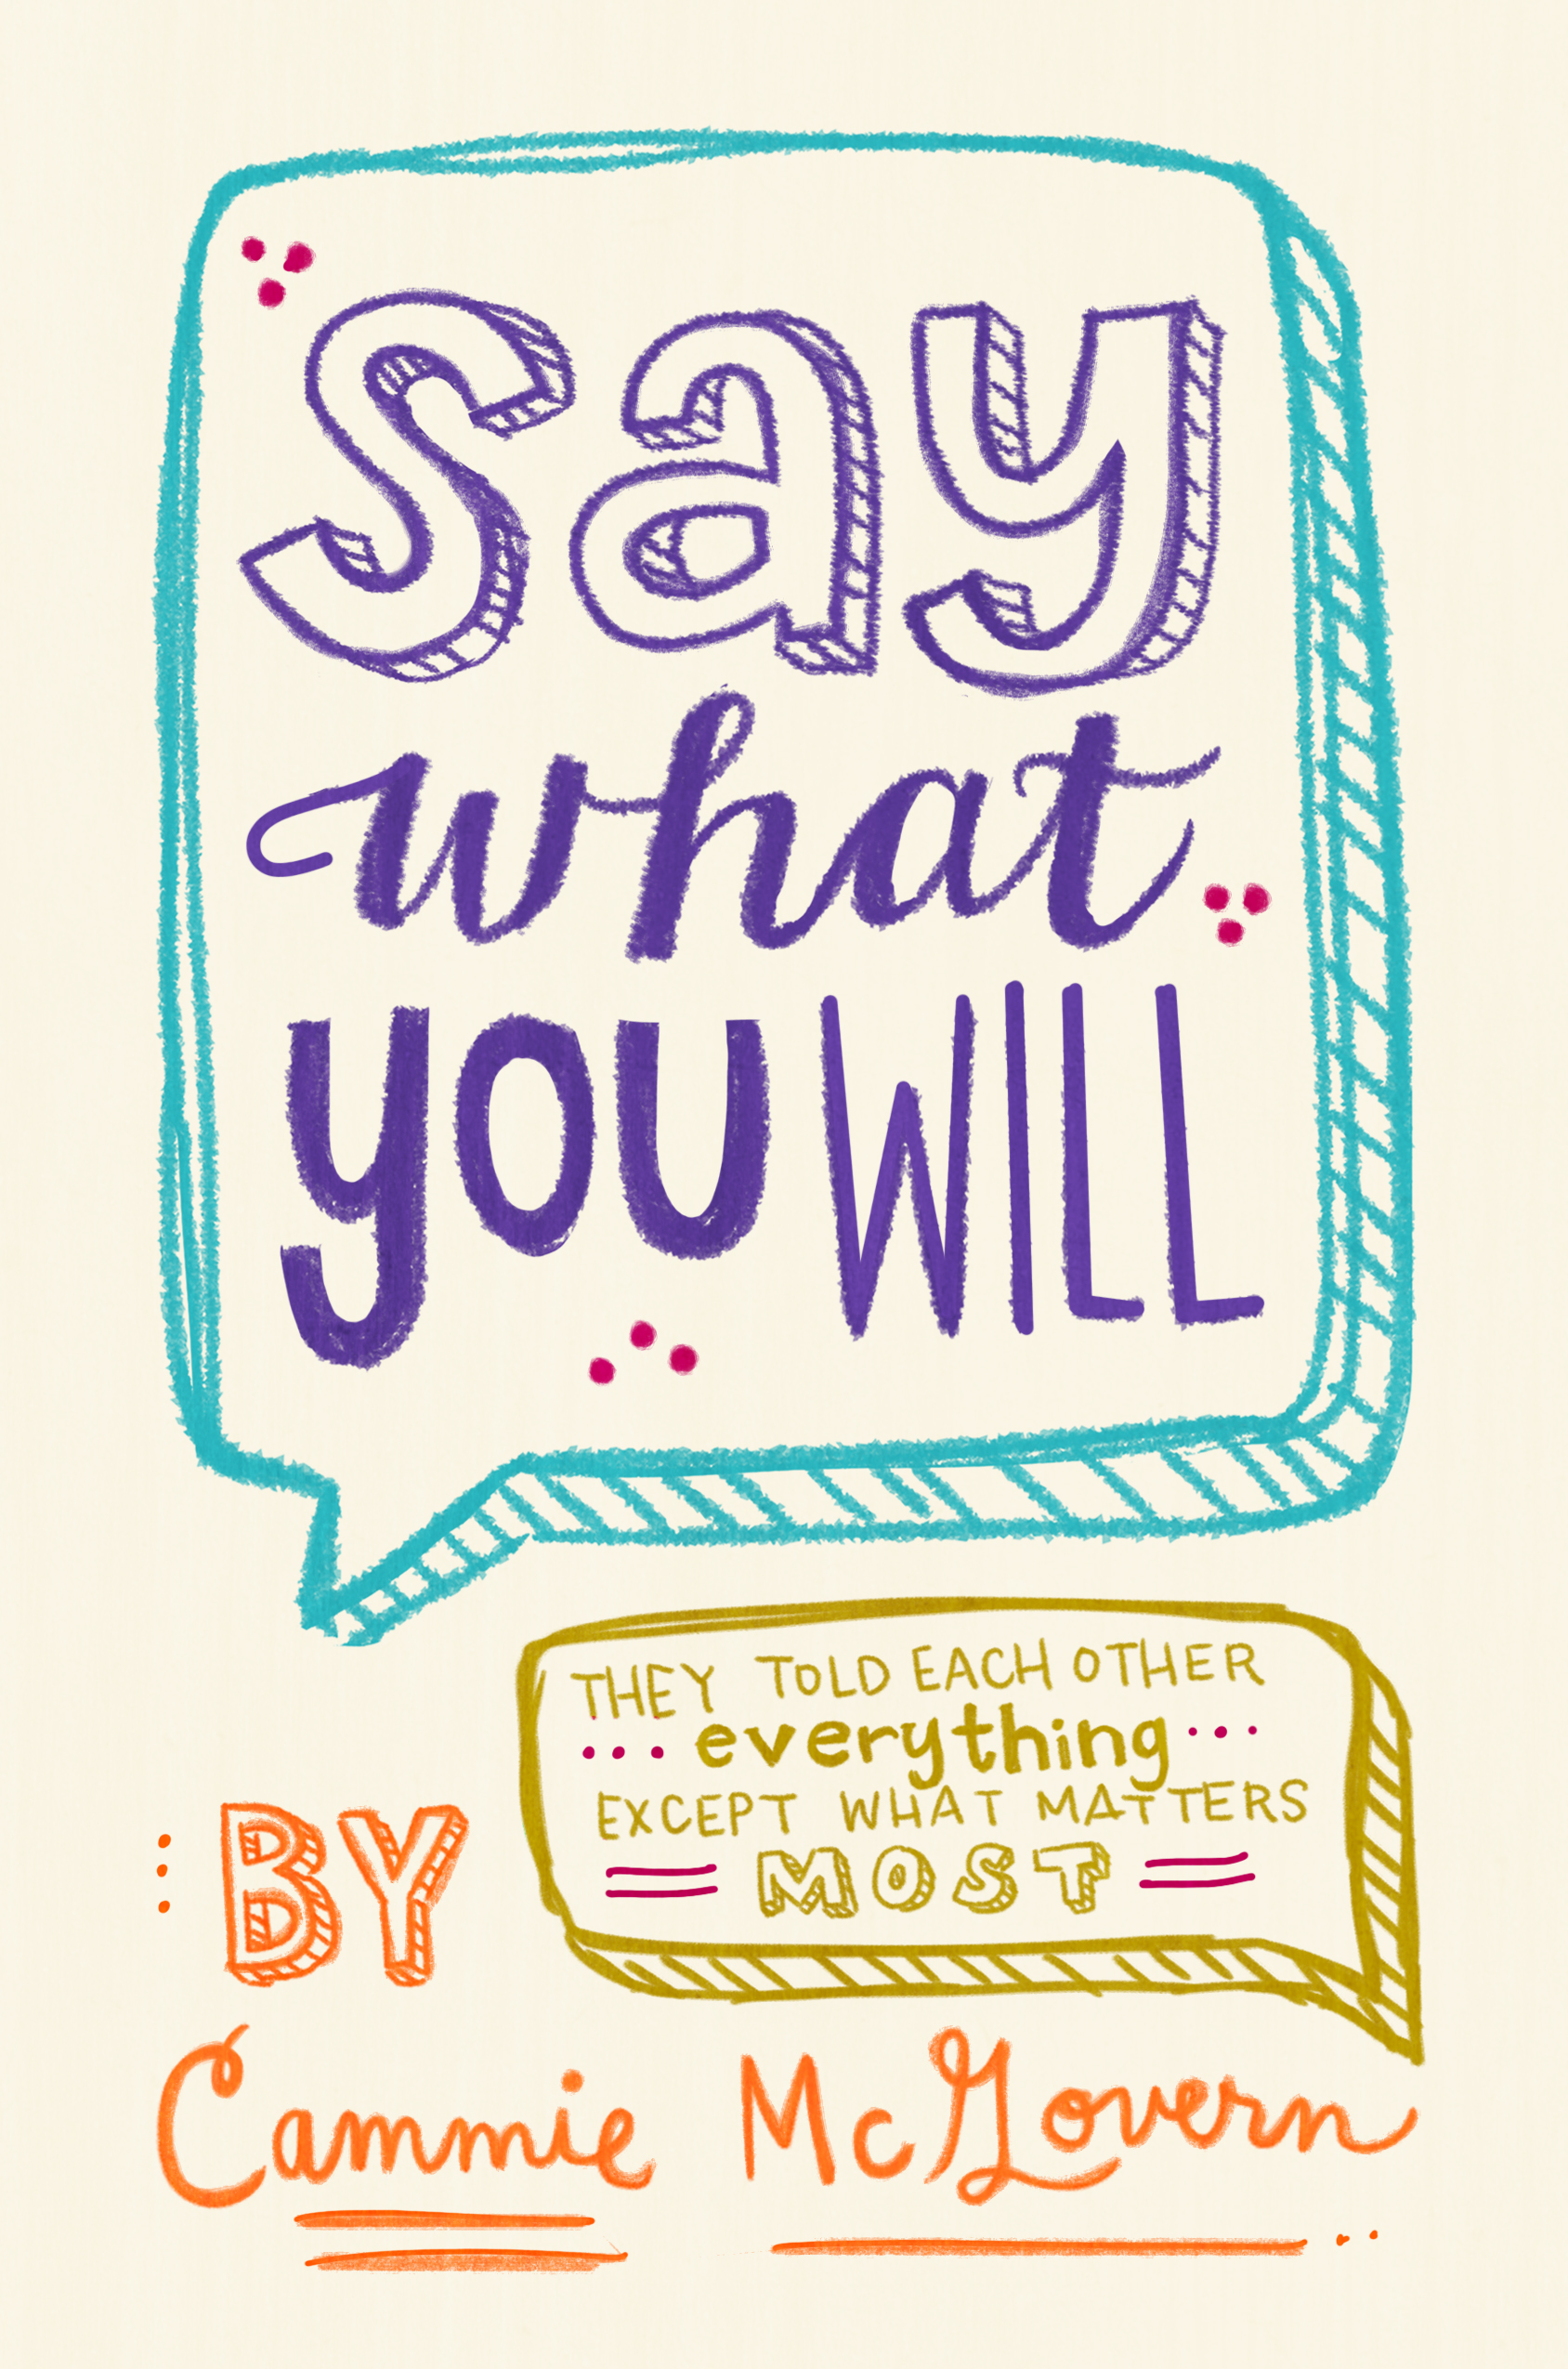 say
what
you WILL
THEY TOLD EACH OTHER
everything
EXCEPT WHAT MATTERS
MOST
BY
Cammie McGovern